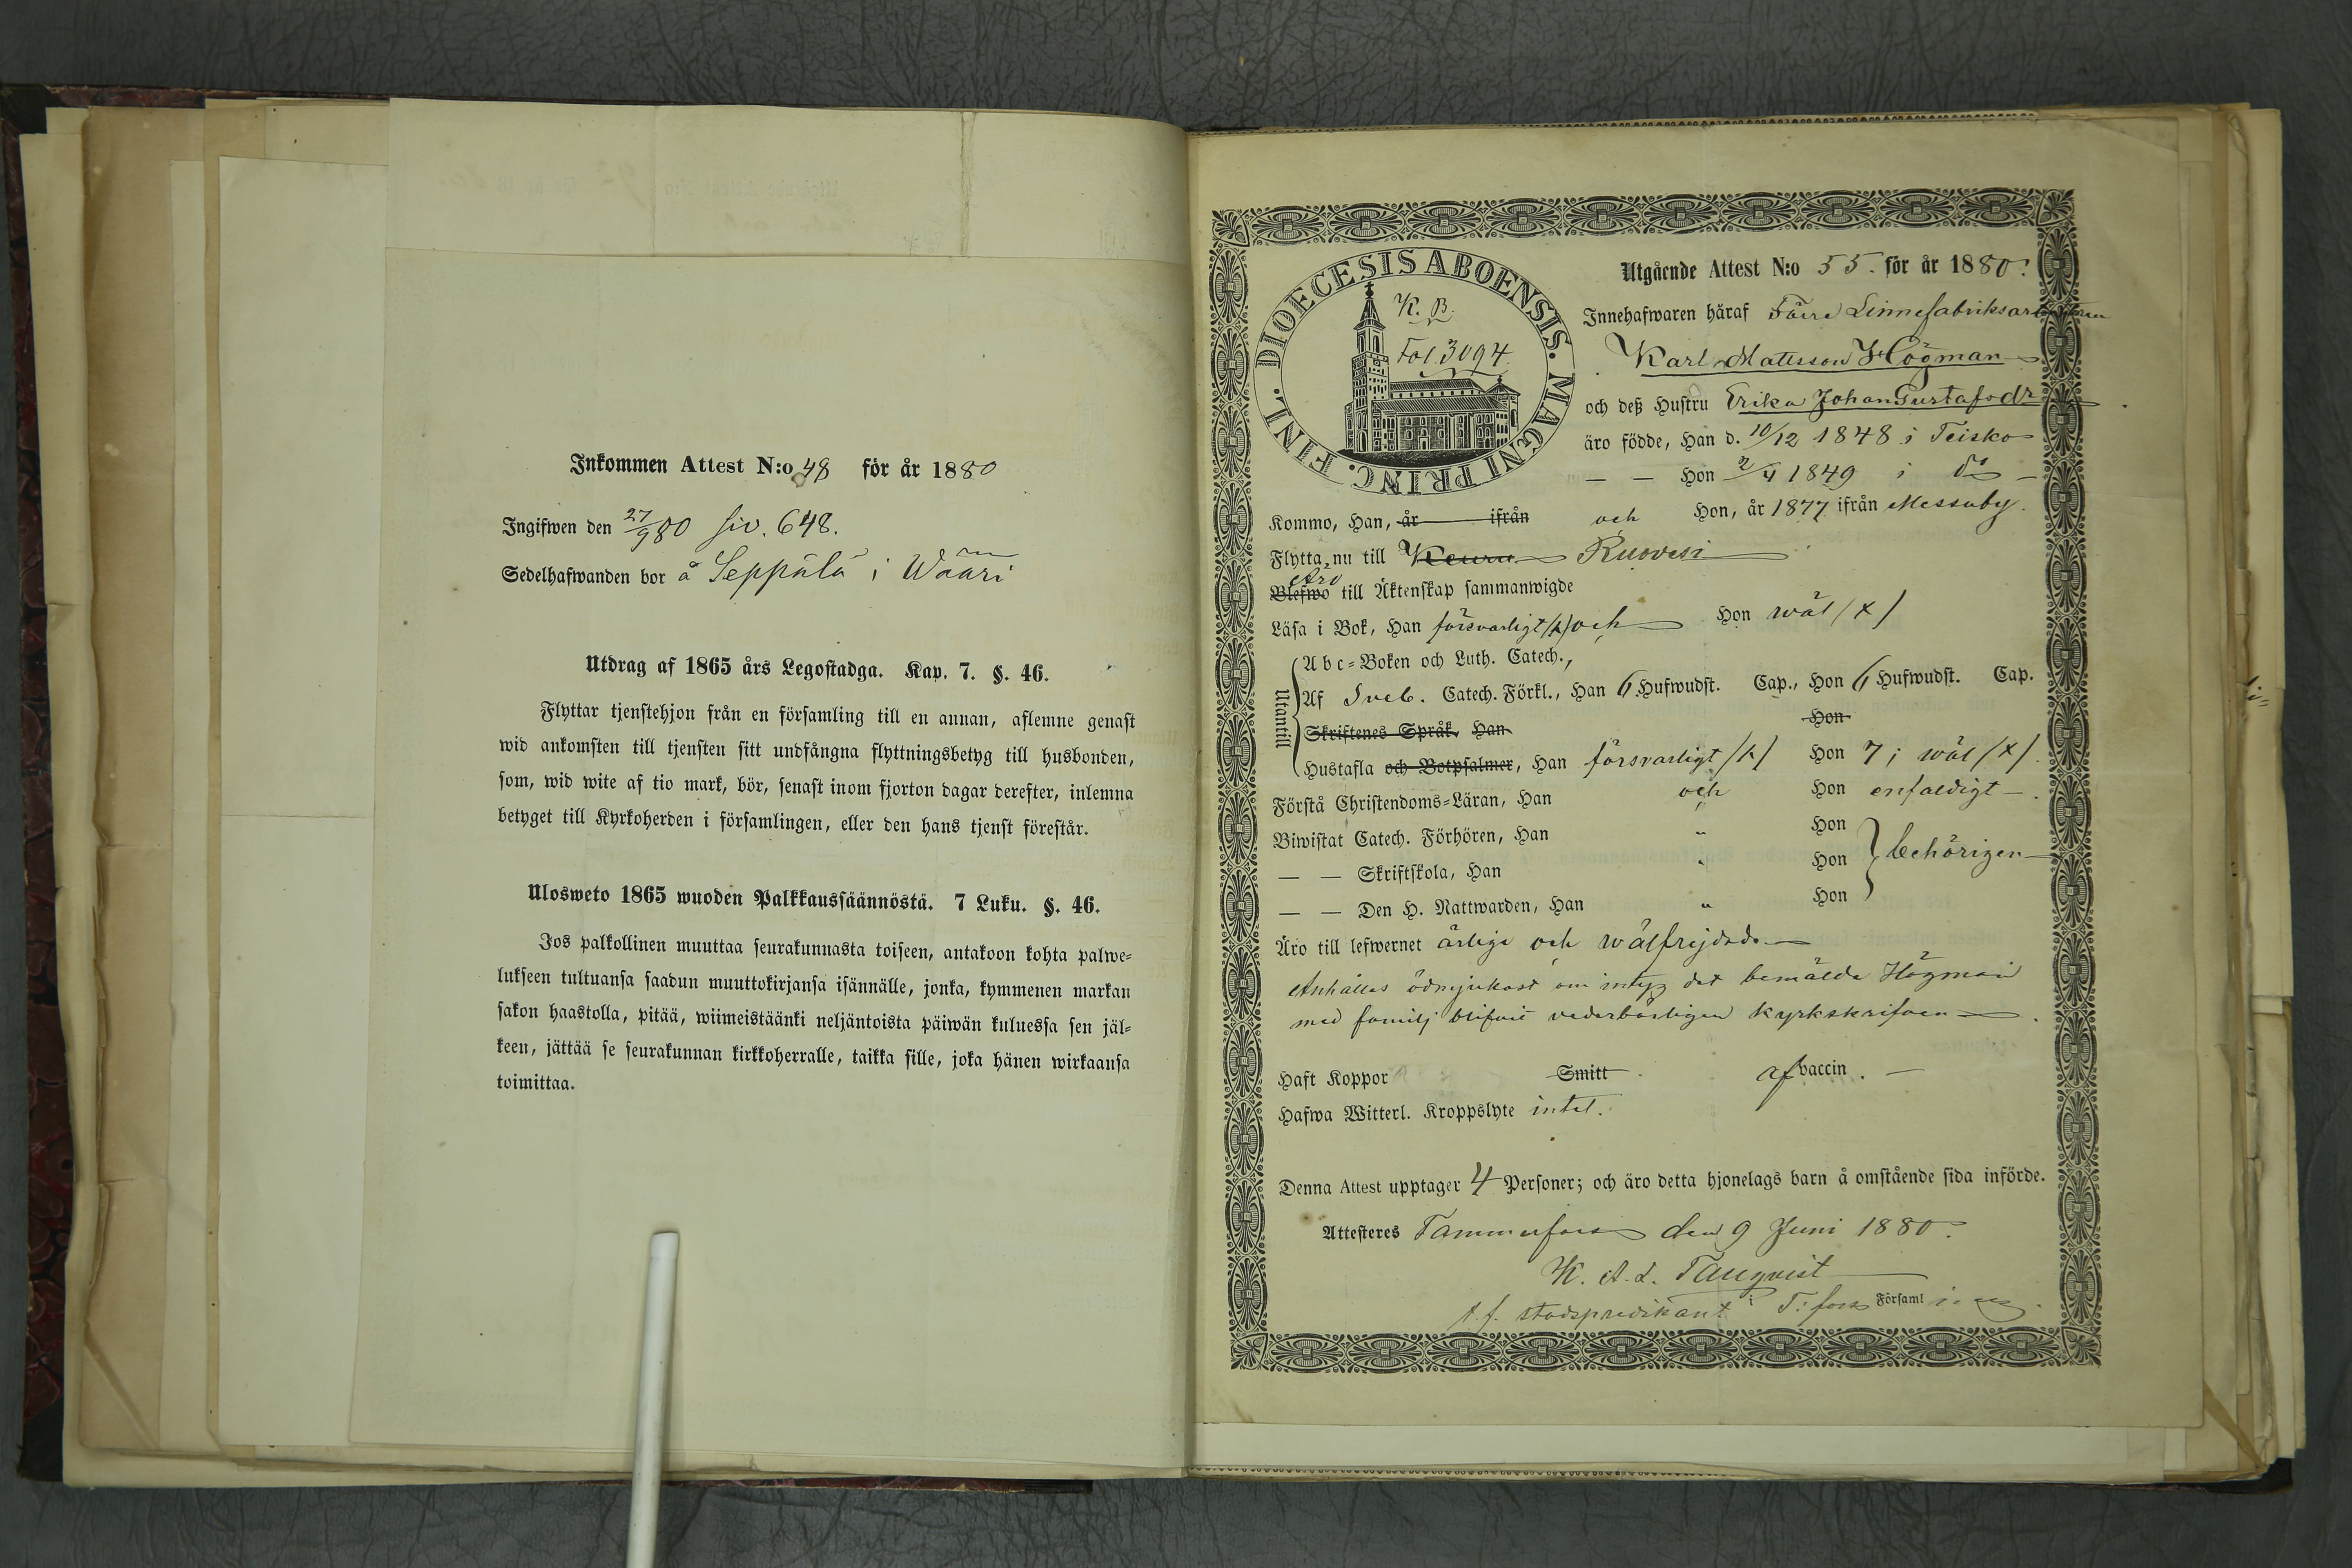 Inkommen Attest N:o 48 för år 1880
Ingifwen den 27/9 80 siv. 648.
Sedelhafwanden bor å Seppälä i Wääri
Utdrag af 1865 års Legostadga. Kap. 7. §. 46.
Flyttar tjenstehjon från en församling till en annan, aflemne genast
wid ankomsten till tjensten sitt undfångna flyttningsbetyg till husbonden,
som, wid wite af tio mark, bör, senast inom fjorton dagar derefter, inlemna
betyget till Kyrkoherden i församlingen, eller den hans tjenst förestår.
Ulosweto 1865 wuoden Palkkaussäännöstä. 7 Luku. §. 46.
Jos palkollinen muuttaa seurakunnasta toiseen, antakoon kohta palwe-
lukseen tultuansa saadun muuttokirjansa isännälle, jonka, kymmenen markan
sakon haastolla, pitää, wiimeistäänki neljäntoista päiwän kuluessa sen jäl-
keen, jättää se seurakunnan kirkkoherralle, taikka sille, joka hänen wirkaansa
toimittaa.
DIOECESIS ABOENSIS. MAGNI PRINC. FINL.
K. B.
Fol 3094.
Utgående Attest N:o 55. för år 1880.
Innehafwaren häraf Före Linnefabriksarbetaren
Karl Mattsson Högman
och deß Hustru Erika Johan Gustafsdr
äro födde, Han d. 10/12 1848 i Teisko
— — Hon 2/4 1849 i do —
Kommo, Han, år ifrån och Hon, år 1877 ifrån Messuby.
Flytta nu till Keuru Ruovesi
Äro
Blefwo till Äktenskap sammanwigde
Läsa i Bok, Han försvarligt och Hon wäl (x)
Utantill
Abc-Boken och Luth. Catech.,
Af Sveb. Catech. Förkl., Han 6 Hufwudst. Cap., Hon 6 Hufwudst. Cap.
Skriftenes Språk, Han Hon
Hustafla och Botpsalmer, Han försvarligt Hon 7; wäl (x).
Förstå Christendoms-Läran, Han och Hon enfaldigt —.
Biwistat Catech. Förhören, Han " Hon
— — Skriftskola, Han " Hon behörigen
— — Den H. Nattwarden, Han " Hon
Äro till lefwernet ärliga och wälfrejdade
Anhålles ödmjukast om intyg det bemälde Högman
med familj blifvit vederbörligen kyrkskrifven
Haft Koppor Smitt af vaccin. —
Hafwa Witterl. Kroppslyte intet.
Denna Attest upptager 4 Personer; och äro detta hjonelags barn å omstående sida införde.
Attesteres Tammerfors den 9 Juni 1880.
K. A. L. Tauqvist
t. f. stadspredikant i T:fors Församl